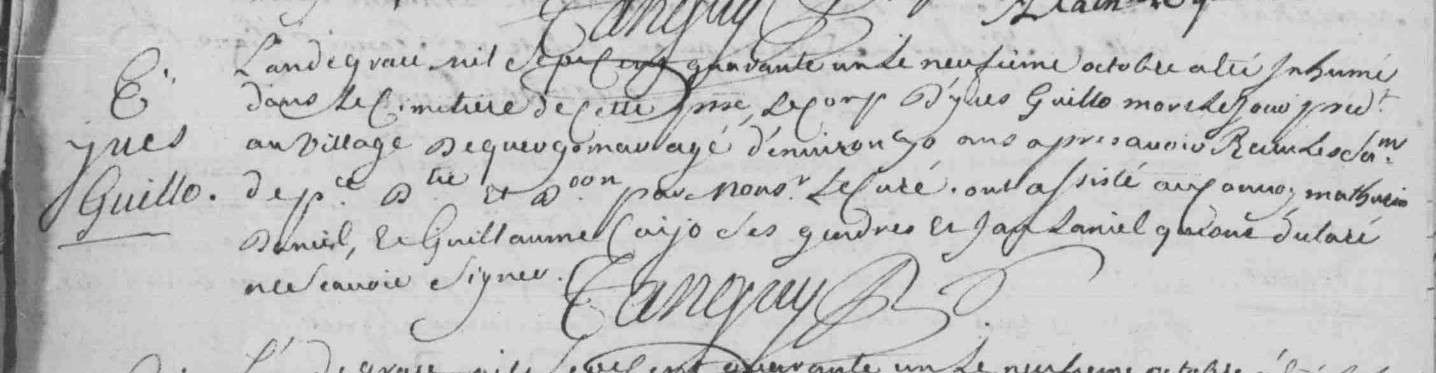 Tanguy
E.
yves
Guillo.
L'an de grace mil sept cent quarante un le neufieme octobre a été Inhumé
dans le Cimetiere de Cette psse, le corp d'yves Guillo mort le jour préd.t
au village de quergomar agé d'environ 50 ans apres avoir Recu les Sa.m
de p.ce D.tie et D.oon par Mons.r le Curé. ont assisté au Convoy mathurin
Daniel, et Guillaume Caijo ses gendres et Jan Daniel qui ont déclaré
ne Scavoir signer.
Tanguy
L'an de grace mil Sept cent quarante un le neufieme octobre a été